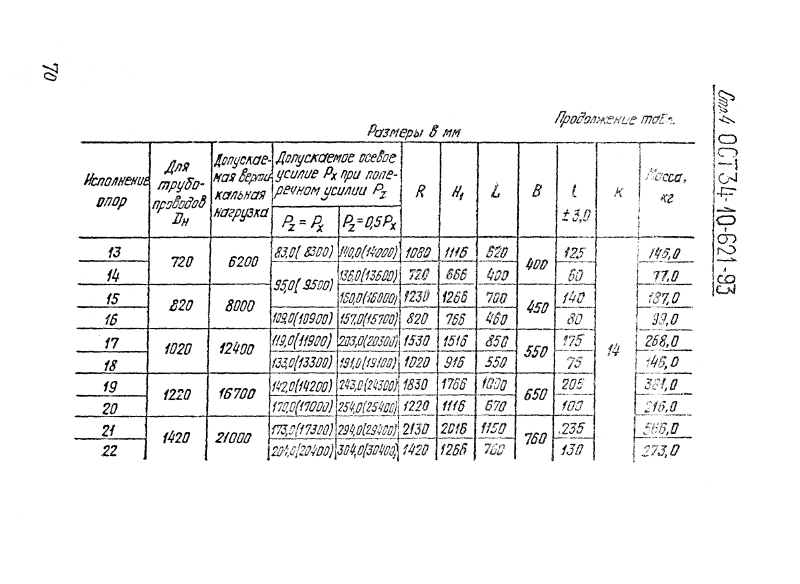 70
Стр.4 ОСТ34-10-621-93
Продолжение табл.
Размеры в мм
Исполнение опор | Для трубопроводов Dн | Допускаемая вертикальная нагрузка | Допускаемое осевое усилие Px при поперечном усилии Pz | R | H1 | L | B | t ±3,0 | K | Масса, кг
Pz = Px | Pz=0,5Px
13 | 720 | 6200 | 83,0( 8300) | 140,0(14000) | 1080 | 1116 | 620 | 400 | 125 | 14 | 145,0
14 | 95,0( 9500) | 136,0(13600) | 720 | 666 | 400 | 60 | 77,0
15 | 820 | 8000 | 160,0(16000) | 1230 | 1266 | 700 | 450 | 140 | 187,0
16 | 109,0(10900) | 157,0(15700) | 820 | 766 | 460 | 80 | 99,0
17 | 1020 | 12400 | 119,0(11900) | 203,0(20300) | 1530 | 1516 | 850 | 550 | 175 | 268,0
18 | 133,0(13300) | 191,0(19100) | 1020 | 916 | 550 | 75 | 146,0
19 | 1220 | 16700 | 142,0(14200) | 243,0(24300) | 1830 | 1766 | 1000 | 650 | 205 | 381,0
20 | 170,0(17000) | 254,0(25400) | 1220 | 1116 | 670 | 100 | 216,0
21 | 1420 | 21000 | 173,0(17300) | 294,0(29400) | 2130 | 2016 | 1150 | 760 | 235 | 566,0
22 | 204,0(20400) | 304,0(30400) | 1420 | 1266 | 760 | 130 | 273,0